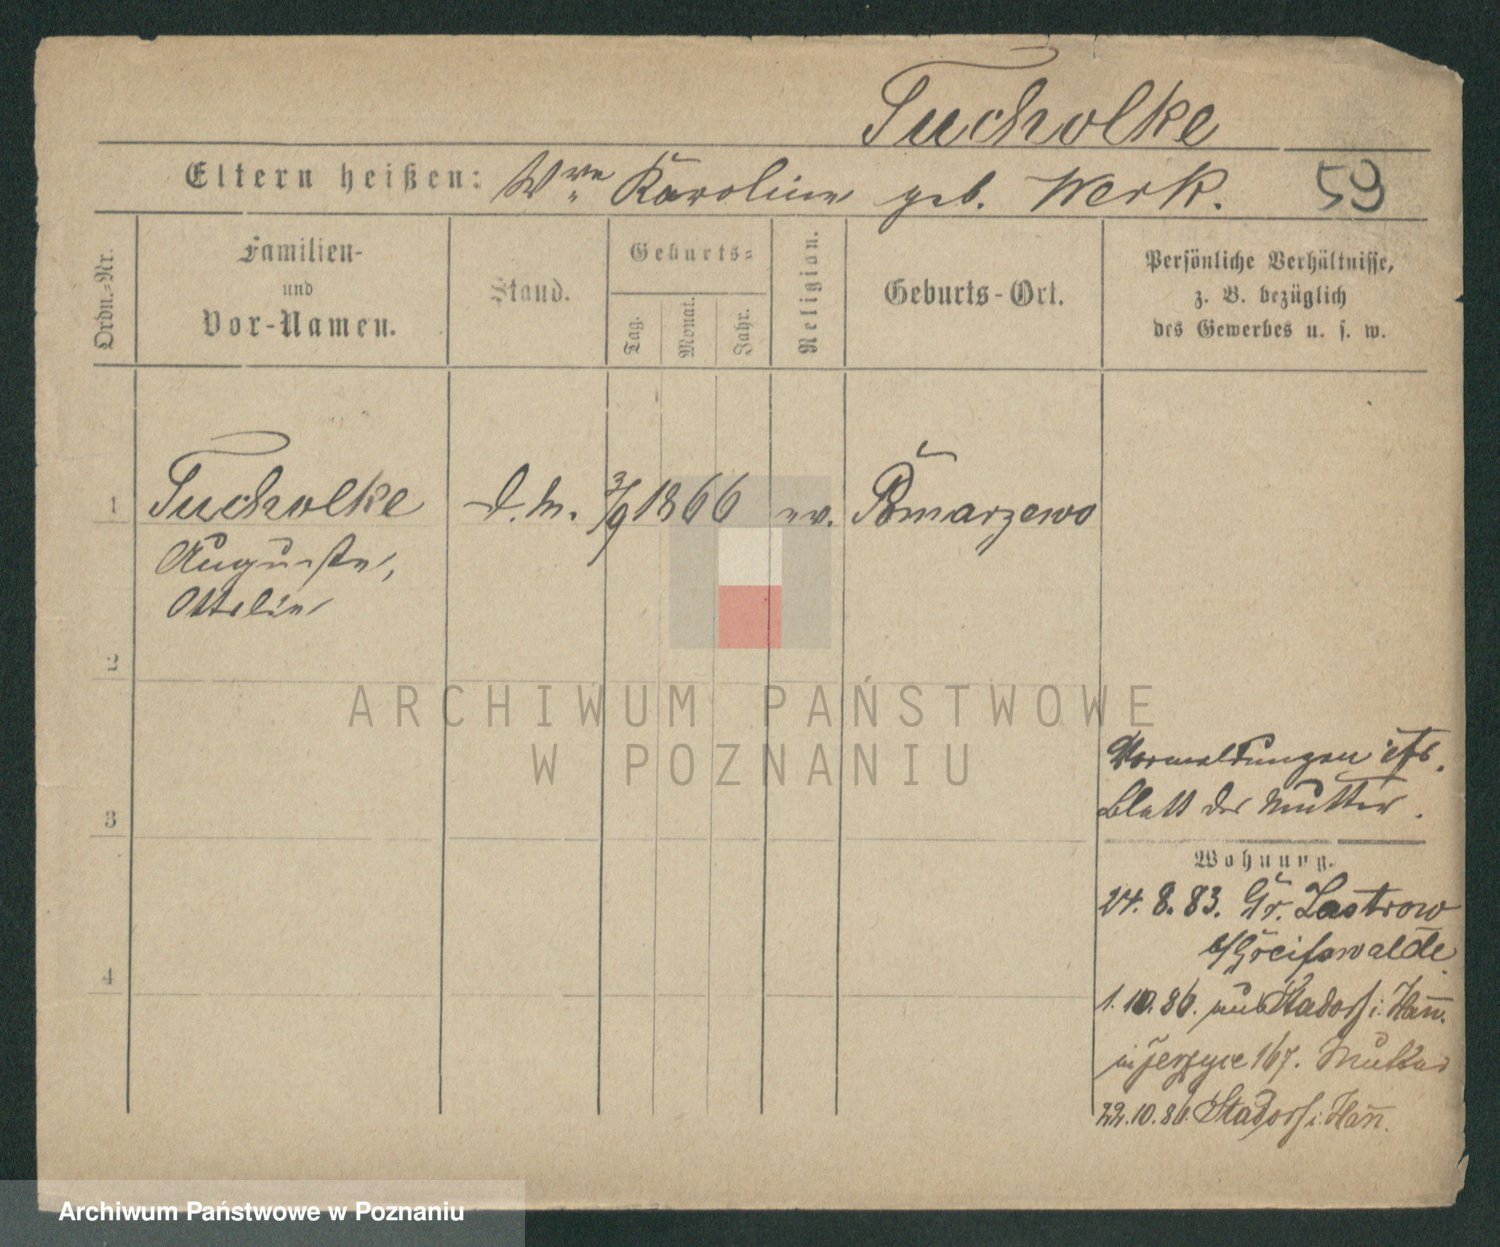 Tucholke
Eltern heißen: Wwe Karoline geb. Werk.
59
Ordn.=Nr.
Familien-
und
Vor-Namen.
Stand.
Geburts=
Tag.
Monat.
Jahr.
Religion.
Geburts-Ort.
Persönliche Verhältnisse,
z. B. bezüglich
des Gewerbes u. s. w.
1 Tucholke d. M. 3/9 1866 ev. Pomarzewo
Auguste,
Ottilie
2
ARCHIWUM PAŃSTWOWE
W POZNANIU
3
Blatt der Mutter.
Wohnung.
24. 8. 83. Gr. Zastrow
b/Greifswalde.
4
1. 10. 86. aus Stadorf i. Hann.
in Jerzyce 167. Mutter
22. 10. 86. Stadorf i. Hann.
Archiwum Państwowe w Poznaniu